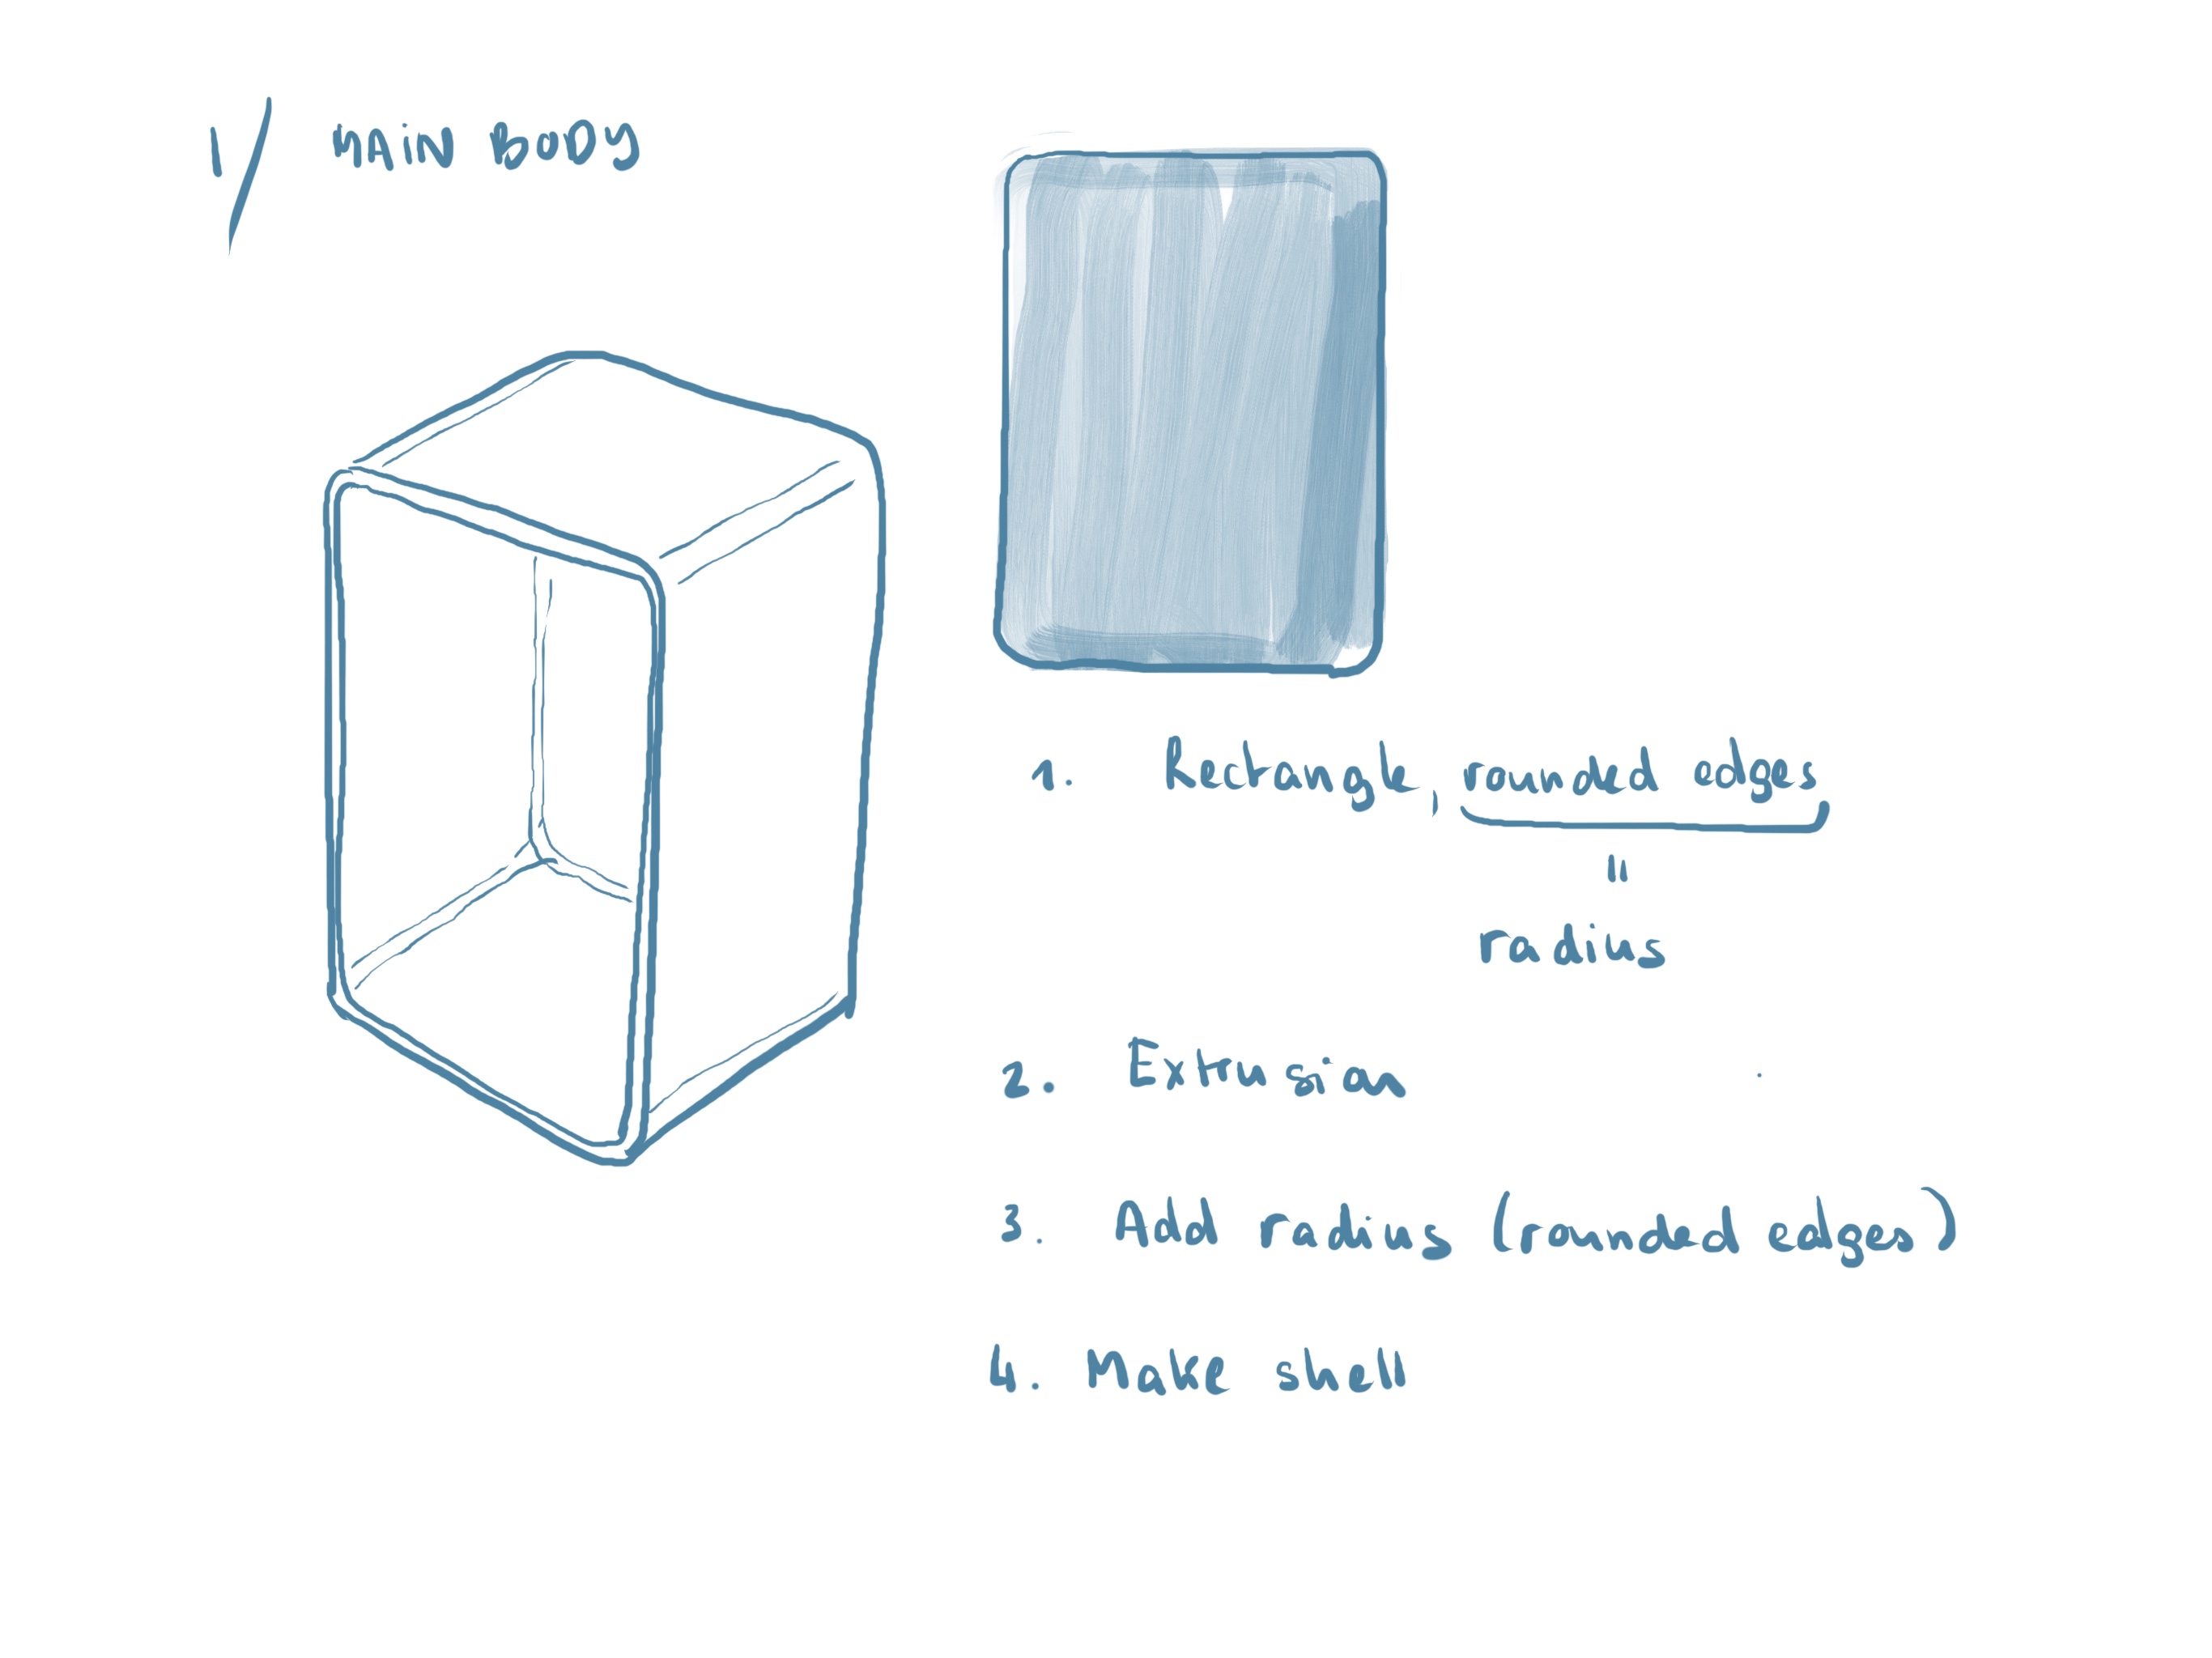 1/ MAiN BODY
1. Rectangle, rounded edges
"
radius
2. Extrusion
3. Add radius (rounded edges)
4. Make shell